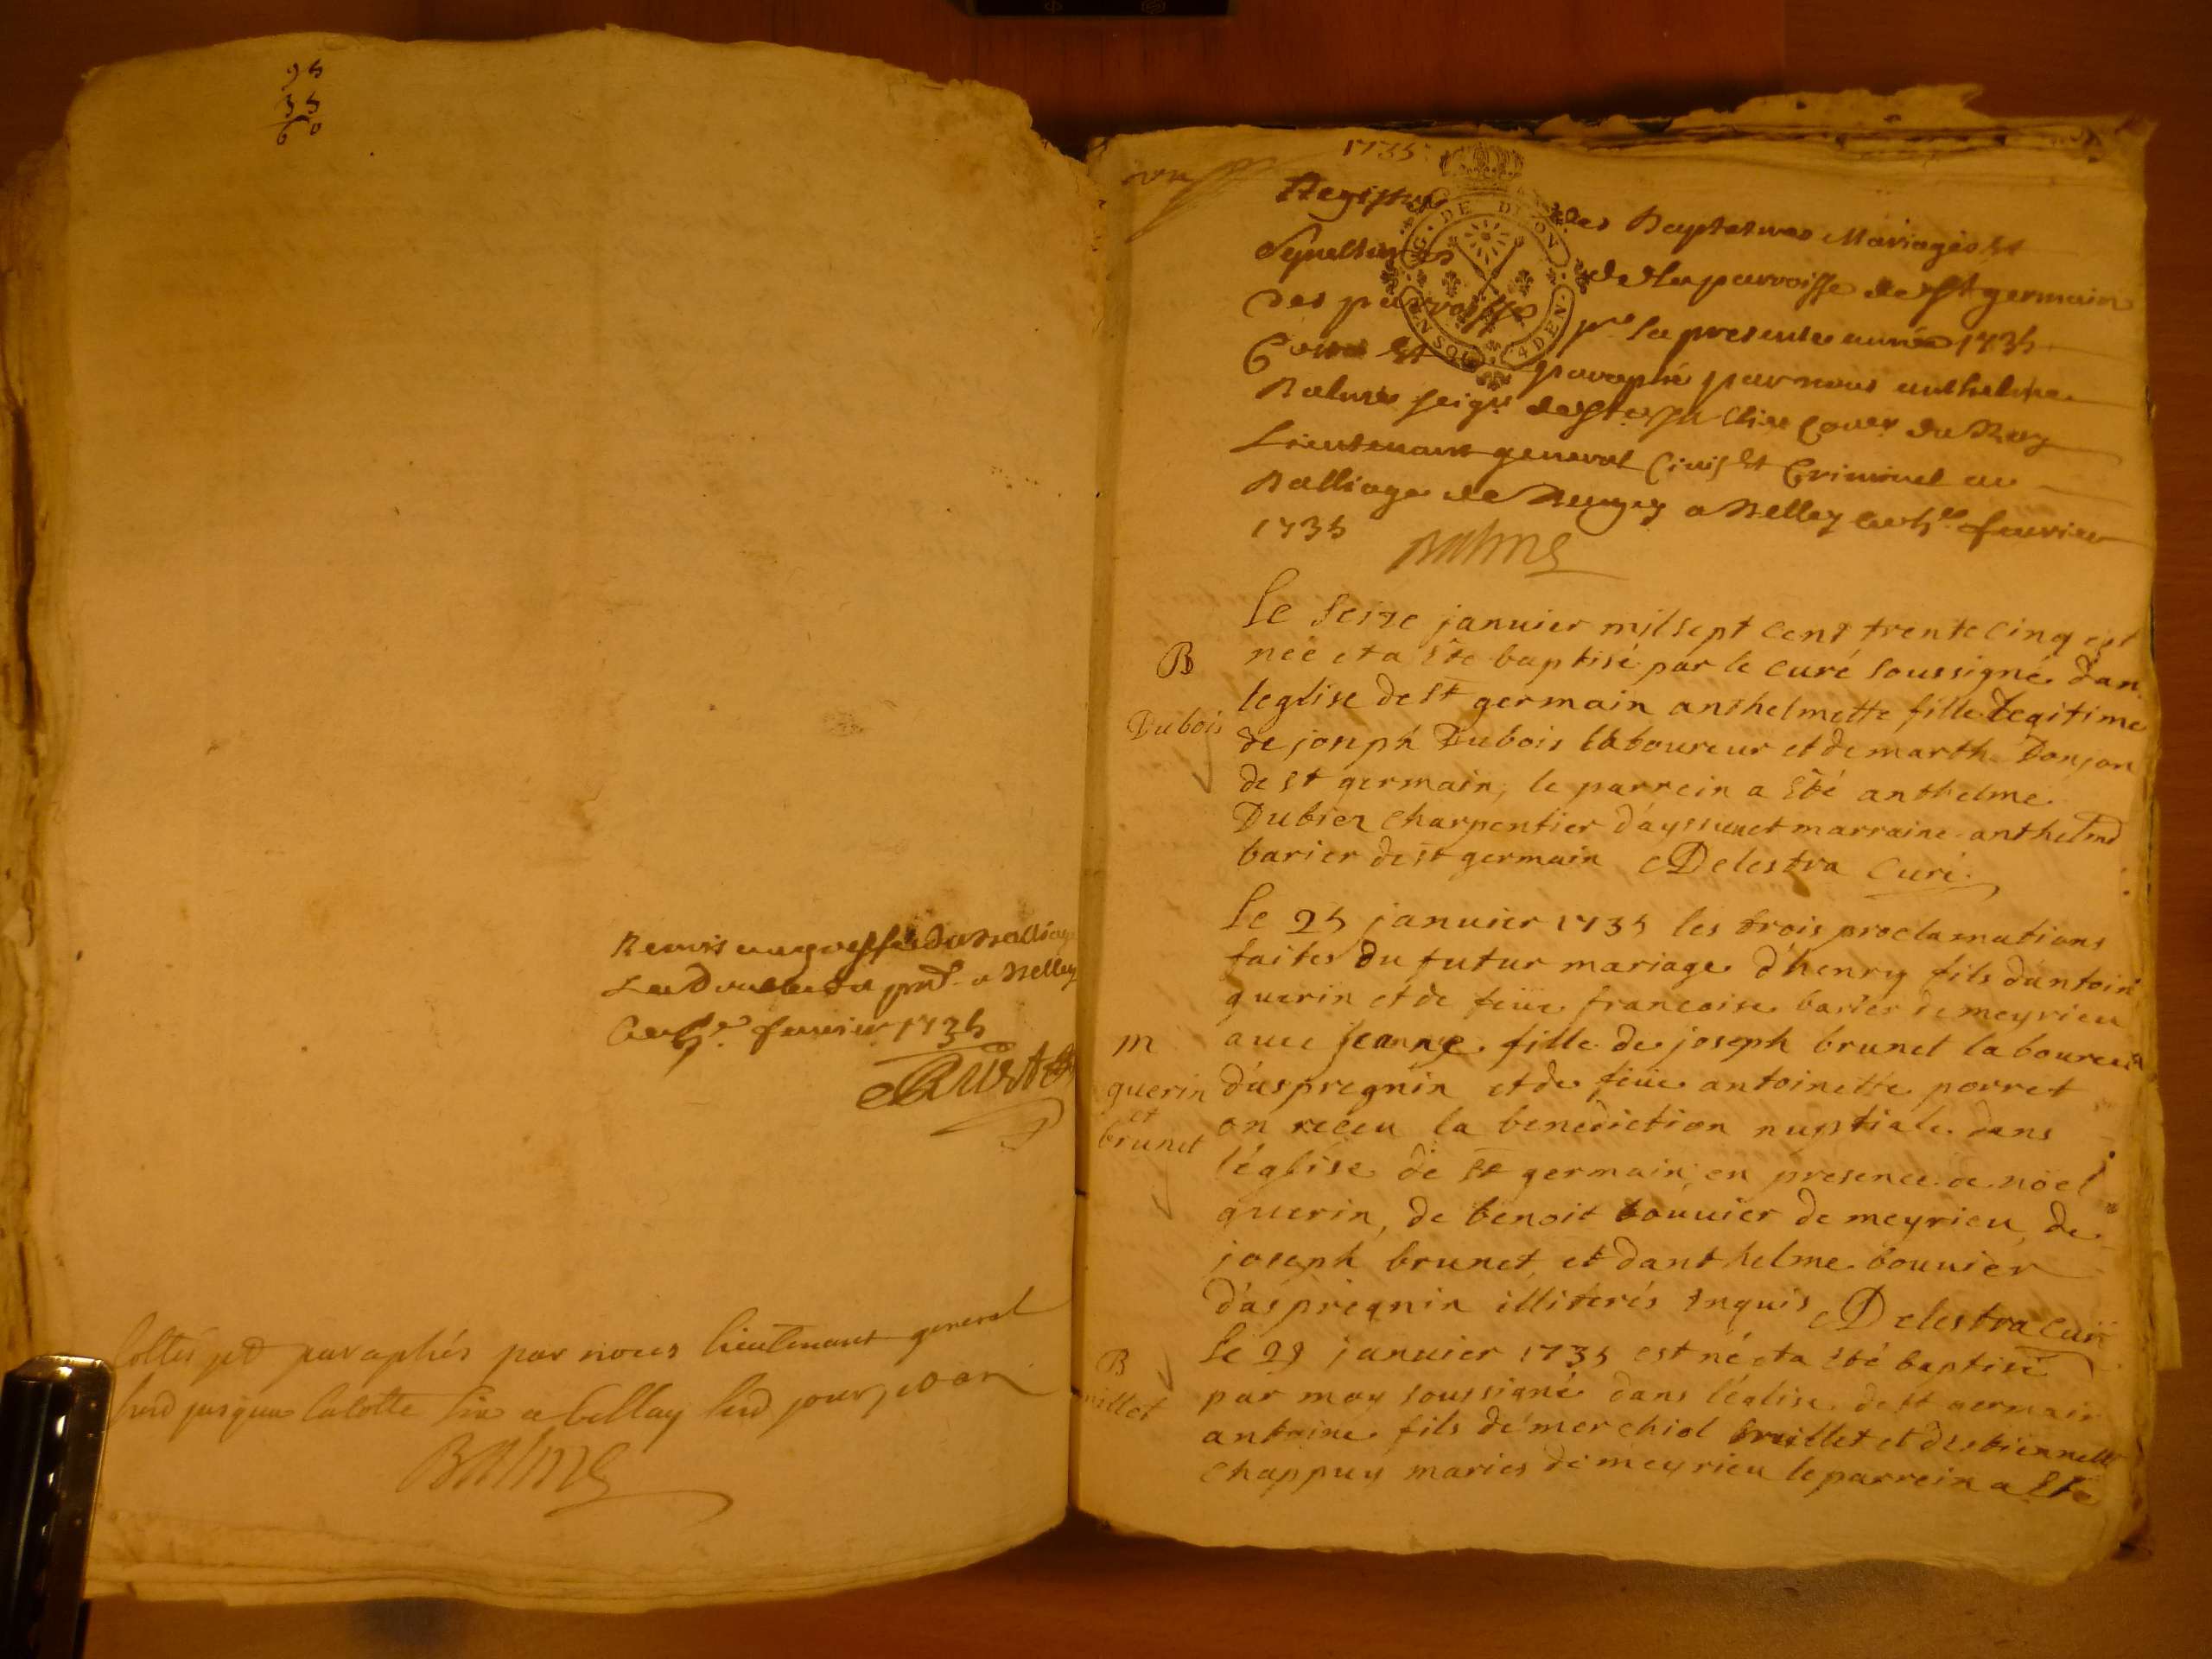 95
35
60
Remis au greffe du Balliage
Le Double du pnt. a Belley
fevrier 1735
Cottés et paraphés par nous lieutenant general
susd jusques la cotte six a Bellay lesd jour et an
Balme
1735
Registre des Baptesmes Mariages et
Sepultures de la parroisse de St germain
des parroisses pr. la presente année 1735
Cotté et paraphé par nous anthelme
Balme seigr de Ste Coner du Roy
Lieutenant general Civil et Criminel au
Balliage de Beugey a Belley fevrier
1735 Balme
G. DE DIJON
UN SOL 4 DEN.
Le seize januier mil sept cent trente cinq est
B
née et a Eté baptisé par le curé soussigné dan
leglise de St germain anthelmette fille legitime
Dubois
de joseph Dubois laboureur et de marthe Donjon
de st germain, le parrein a Eté anthelme
Dubiez charpentier marraine anthelme
barier de st germain Delestra Curé.
Le 25 januier 1735 les trois proclamations
faites du futur mariage d'henry fils d'antoin
guerin et de feüe francoise barier de meyrieu
m
auec jeanne fille de joseph brunet laboureur
guerin
et
brunet
d'aspregnin et de feüe antoinette porret
on receu la benediction nuptiale dans
l'église de St germain, en presence de noël
guerin, de benoit bouuier de meyrieu, de
joseph brunet, et d'anthelme bouuier
d'aspregnin illiterés Enquis Delestra curé
Le 29 januier 1735 est né et a Eté baptisé
B
par moy soussigné dans l'église de st germain
millet
antoine fils de merchiol et d'estiennette
chappuy mariés de meyrieu le parrein a Eté